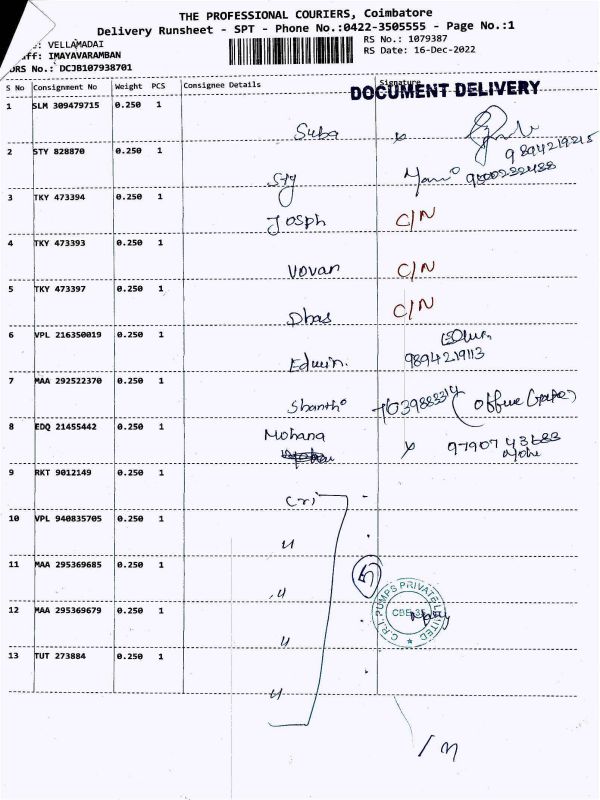 THE PROFESSIONAL COURIERS, Coimbatore
Delivery Runsheet - SPT - Phone No.:0422-3505555 - Page No.:1
: VELLAMADAI
aff: IMAYAVARAMBAN
DRS No.: DCJB107938701
RS No.: 1079387
RS Date: 16-Dec-2022
S No Consignment No Weight PCS Consignee Details Signature
DOCUMENT DELIVERY
1 SLM 309479715 0.250 1
Suba x
9894219215
2 STY 828870 0.250 1
Sty
3 TKY 473394 0.250 1
Josph C/N
4 TKY 473393 0.250 1
Vovan C/N
5 TKY 473397 0.250 1
Dhas C/N
6 VPL 216350019 0.250 1
Edwin. 9894219113
7 MAA 292522370 0.250 1
Shantho
8 EDQ 21455442 0.250 1
Mohana x
9 RKT 9012149 0.250 1
Cri
10 VPL 940835705 0.250 1
"
11 MAA 295369685 0.250 1
" 5
12 MAA 295369679 0.250 1
"
C.R.I. PUMPS PRIVATE LIMITED
CBE-35
13 TUT 273884 0.250 1
"